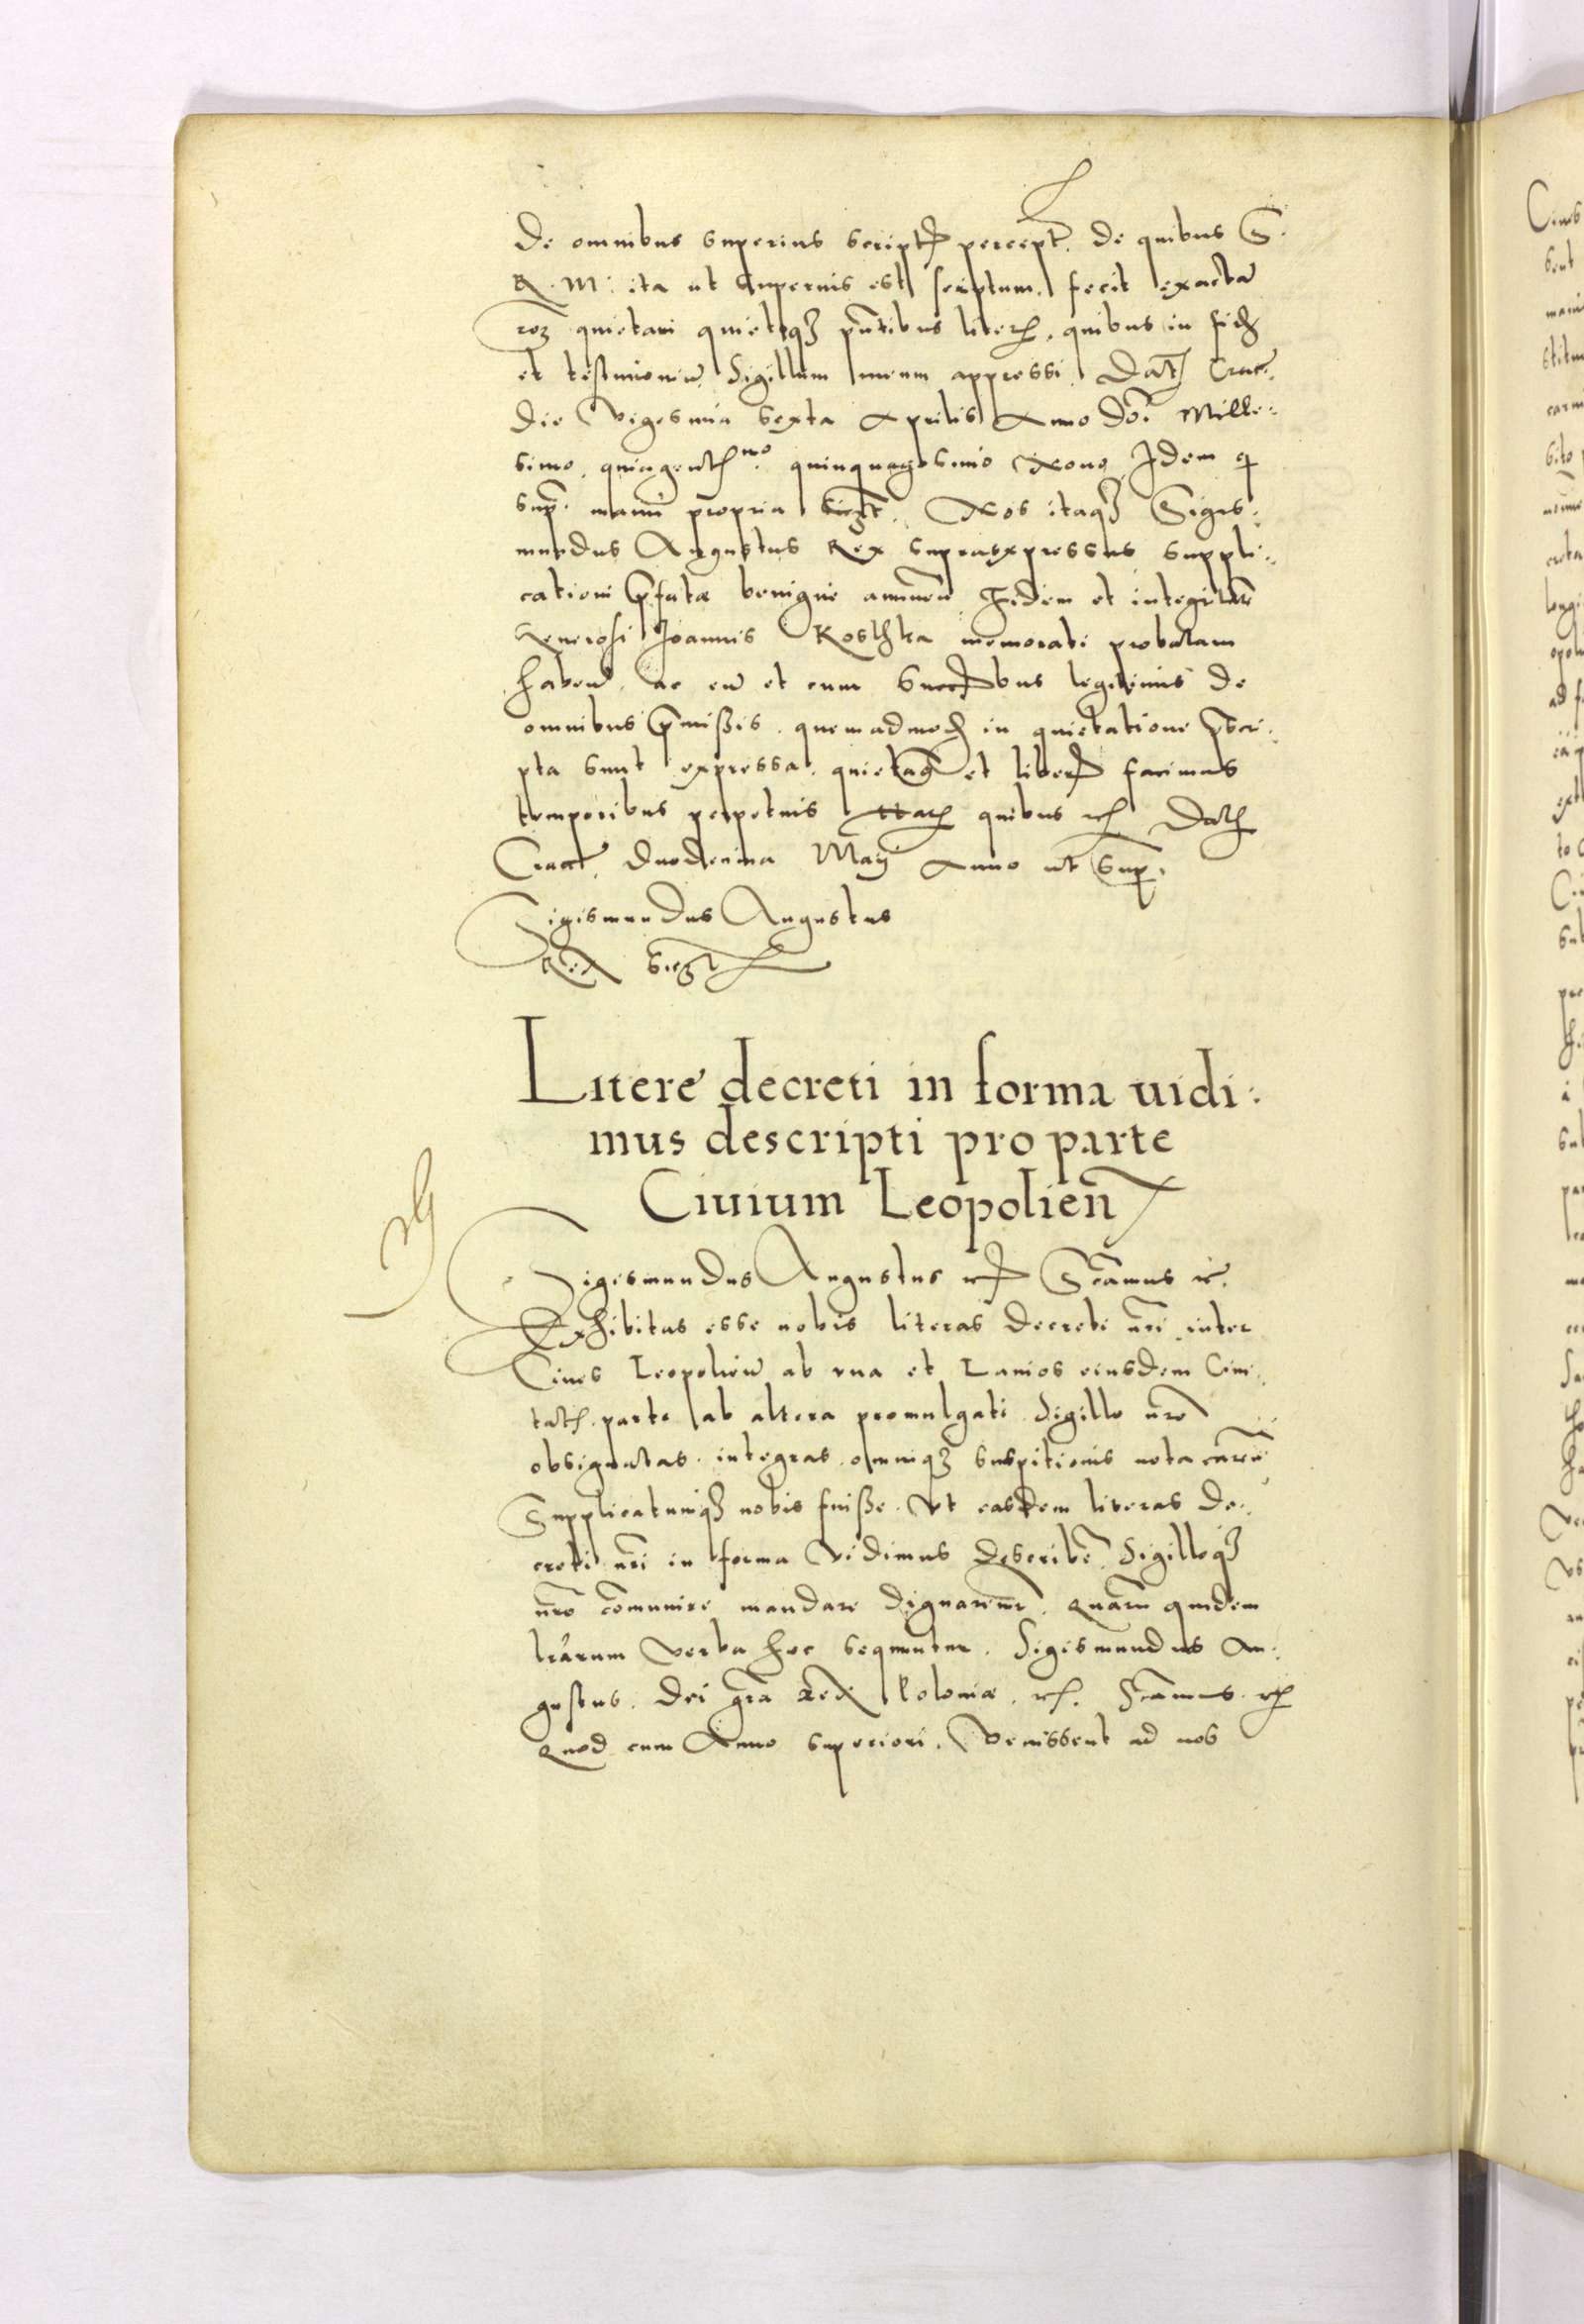 de omnibus superius script percept. de quibus S.
R. M: ita ut superius est scriptum, fecit exactã
roẽ quietavi quietoqȝ pñtibus liter, quibus in fidẽ
et testimoniũ Sigillum meum appressi. Dat Crac.
die Vigesima sexta Aprilis Anno Doĩ Mille:
simo, quingent mo quinquagesimo Nono, Idem q
sup. manũ propria sszt. Nos itaqȝ Sigis:
mundus Augustus Rex supraexpressus suppli:
cationi p̃fatæ benigne annueñ, Fidem et integritatẽ
Generosi Joannis Kosthka memorati probatam
habeñ, ac eũ et eum succbus legitimis de
omnibus p̃mißis, quemadmod in quietatione p̃scri:
pta sunt expressa, quietaũ et liber facimus
temporibus perpetuis har quibus rc Dat
Cracc. duodecima Maij Anno ut sup.
Sigismundus Augustus
Rex sszt
Litere decreti in forma uidi:
mus descripti pro parte
Ciuium Leopolieñ
Sigismundus Augustus rc Scamus rc.
Exhibitas esse nobis literas decreti nri inter
Ciues Leopolieñ ab vna et Lanios eiusdem Ciui:
tat. parte ab altera promulgati Sigillo nro
obsignatas, integras, omniqȝ suspitionis nota careñ
Supplicatumqȝ nobis fuiße. Vt easdem literas de:
creti nri in forma Vidimus describẽ, Sigilloqȝ
nrõ cõmunire mandare dignaremr. Quarũ quidem
lrarum verba hec sequuntur. Sigismundus Au:
gustus. Dei gra Rex Poloniæ. rc. Scamus. rc
Quod cum Anno superiori. Venissent ad nos